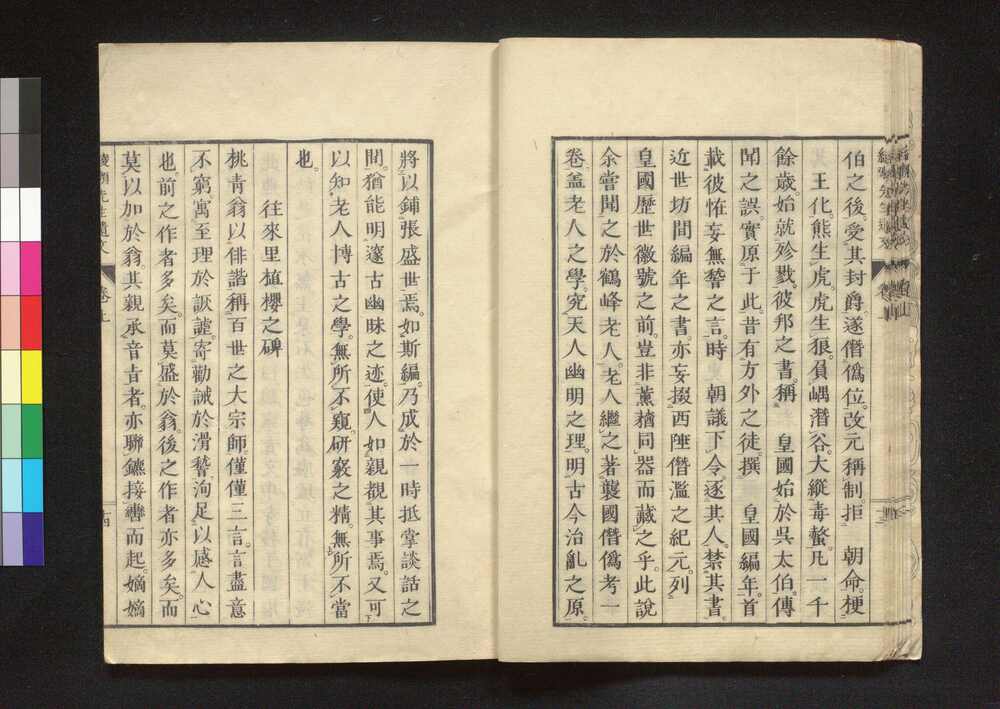 伯之後。受其封爵。遂僭偽位。改元稱制。拒　朝命。梗
王化。熊生虎。虎生狼。負嵎潛谷。大縱毒螫。凡一千
餘歲。始就殄戮。彼邦之書。稱　皇國始於吳太伯。傳
聞之誤。實原于此。昔有方外之徒。撰　皇國編年。首
載彼恠妄無稽之言。時　朝議下令。逐其人。禁其書。
近世坊間編年之書。亦妄掇西陲僭濫之紀元。列
皇國歷世徽號之前。豈非薰蕕同器而藏之乎。此說
余嘗聞之於鶴峰老人。老人繼之著襲國僭偽考一
卷。盖老人之學。究天人幽明之理。明古今治亂之原。
將以鋪張盛世焉。如斯編。乃成於一時抵掌談話之
間。猶能明邃古幽昧之迹。使人如親覩其事焉。又可
以知老人博古之學。無所不窺。研竅之精。無所不當
也。
往來里植櫻之碑
桃青翁以俳諧稱百世之大宗師。僅僅三言。言盡意
不窮。寓至理於詼謔。寄勸誡於滑稽。洵足以感人心
也。前之作者多矣。而莫盛於翁。後之作者亦多矣。而
莫以加於翁。其親承音旨者。亦聯鑣接轡而起。嫡嫡
先生遺文
十四